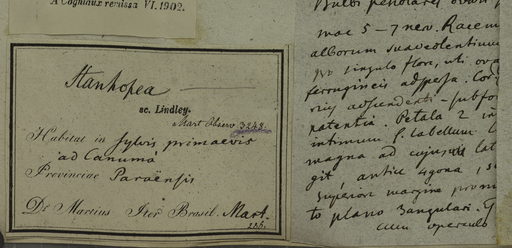 A Cogniaux revissa VI. 1902.
Stanhopea
ac. Lindley.
Mart. Observ. 3248.
Habitat in sylvis primaevis
ad Canumá
Provinciae Paraënsis
Dr. Martius Iter Brasil. Mart.
Bulbi
mac 5-7 nerv. Racem
alborum suaveolentium
pro singulo flore, uti ova
ferrugineis adspersa. Cor
adscendenti-subfo
patentia. Petala 2 in
intimum s. labellum
magna ad cujusvis lat
git, antice 4gona, 1, s
superior margine prom
to plano 3angulari.
cum operculo